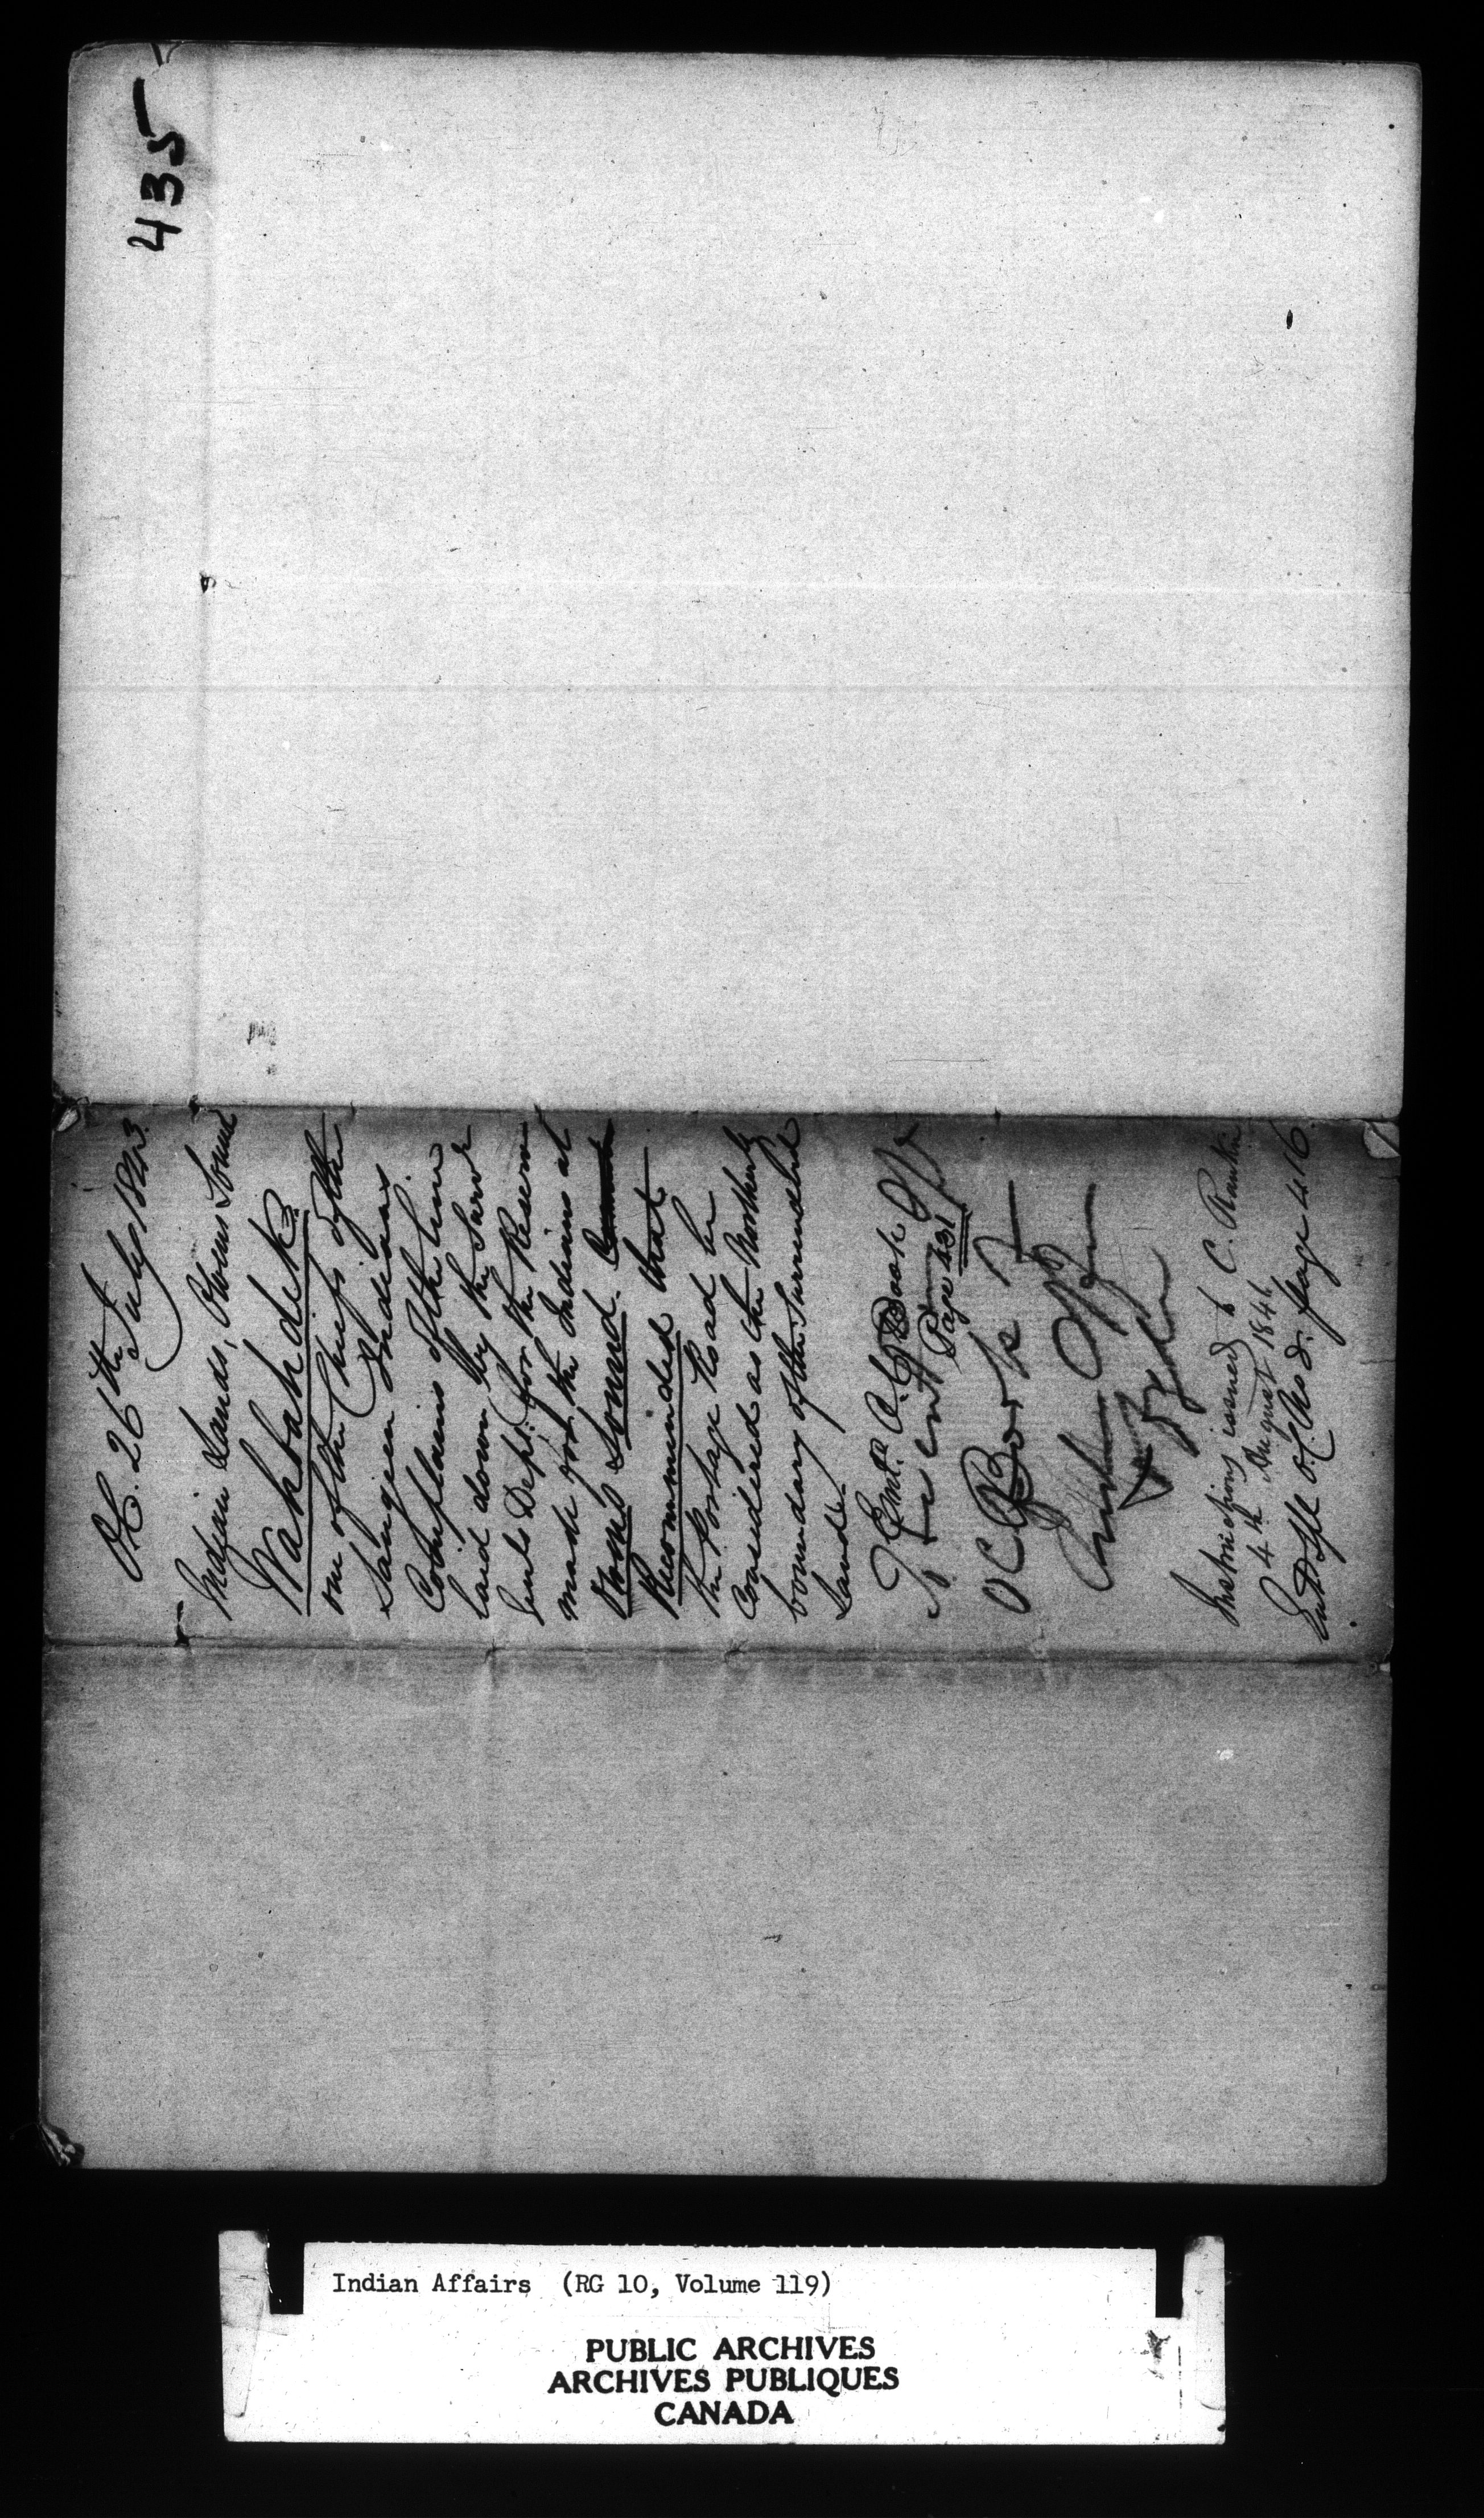 435
O.C. 26th July 1843.
Indian Lands, Owens Sound
Wahbahdick
one of the Chiefs of the
Saugeen Indians
Complains of the line
laid down by the Surve
Genls Dept. for the Reserve
made for the Indians at
Owens Sound.
Recommended that
the Portage Road be
Considered as the Northerly
boundary of the Surrendered
Lands.
Entd. Book
Page 431
O C Book
Instructions issued to C. Rankin
4th August 1846
Entd O.C. page 416
Indian Affairs (RG 10, Volume 119)
PUBLIC ARCHIVES
ARCHIVES PUBLIQUES
CANADA